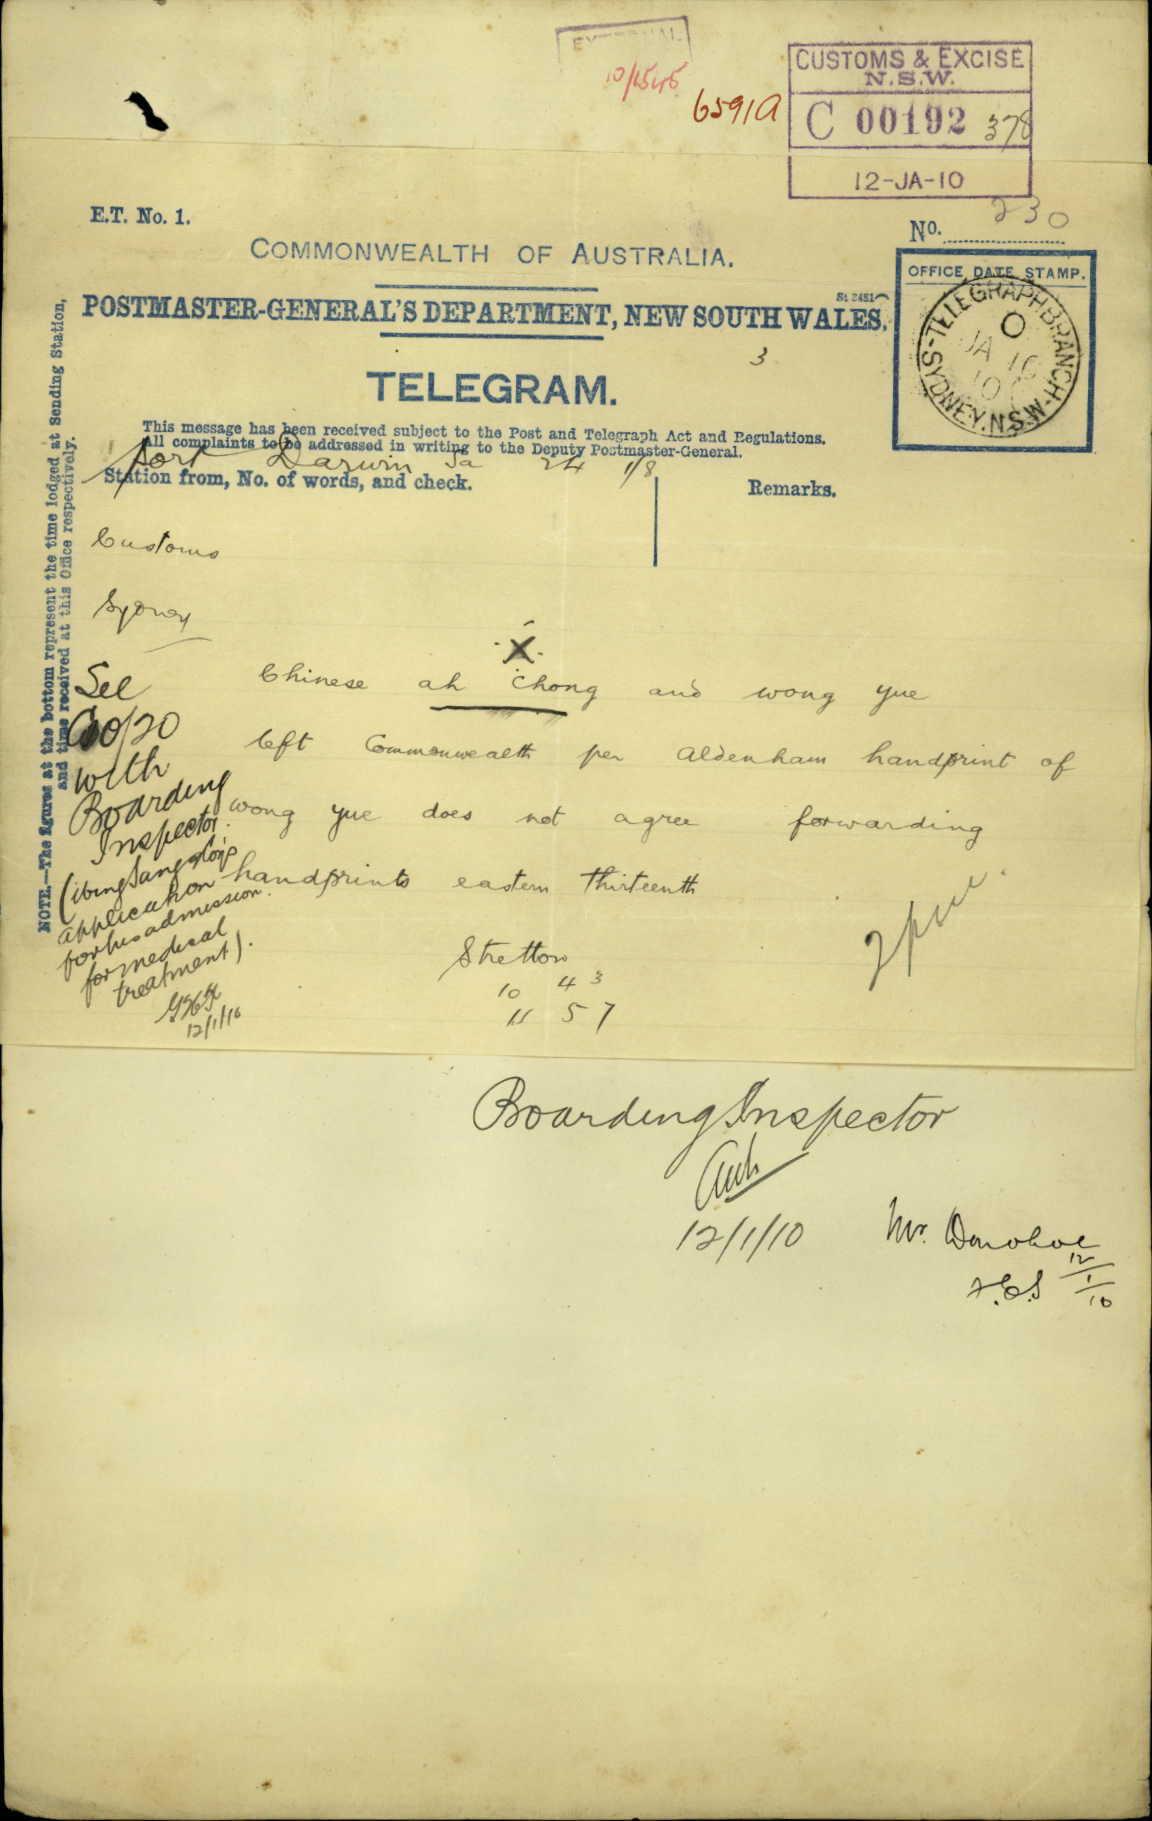 EXTERNAL
10/1545
6591A
CUSTOMS & EXCISE
N.S.W.
C 00192 378
12-JA-10
E.T. No. 1.
No. 230
COMMONWEALTH OF AUSTRALIA.
OFFICE DATE STAMP.
TELEGRAPH BRANCH
SYDNEY. N.S.W.
JA 10
10
POSTMASTER-GENERAL'S DEPARTMENT, NEW SOUTH WALES.
3
TELEGRAM.
This message has been received subject to the Post and Telegraph Act and Regulations.
All complaints to be addressed in writing to the Deputy Postmaster-General.
Port Darwin Sa 24 1/8
Station from, No. of words, and check.
Remarks.
NOTE.—The figures at the bottom represent the time lodged at Sending Station,
and time received at this Office respectively.
Customs
Sydney
X
Chinese ah Chong and wong yue
left Commonwealth per Aldenham handprint of
wong yue does not agree forwarding
handprints eastern thirteenth
Stretton
10 43
11 57
See
10/20
with
Boarding
Inspector
application
for his admission
for medical
treatment).
12/1/10
Boarding Inspector
12/1/10
Mr. Donohoe
12/1/10